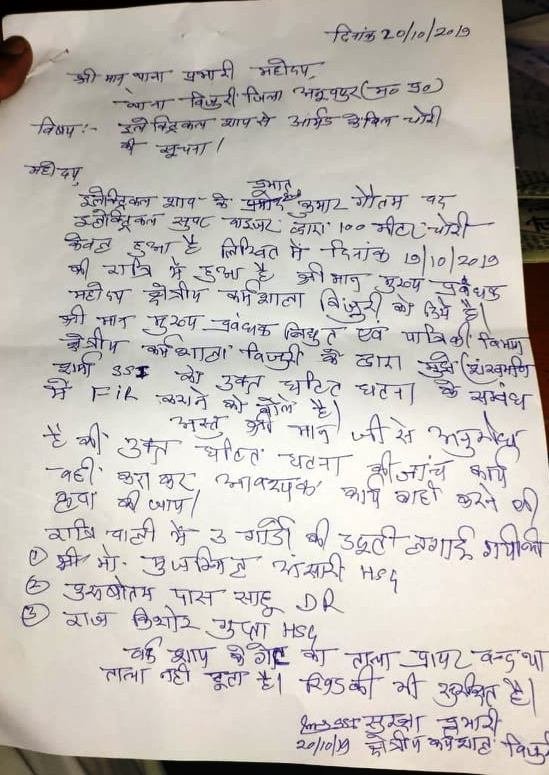 दिनांक 20/10/2019
श्री मान् थाना प्रभारी महोदय,
थाना बिजुरी जिला अनूपपुर (म० प्र०)
विषय :- इलेक्ट्रिकल शाप से आर्मर्ड केबिल चोरी
की सूचना।
महोदय
इलेक्ट्रिकल शाप के प्रभात कुमार गौतम पद
इलेक्ट्रिकल सुपर वाइजर द्वारा 100 मीटर चोरी
केबल हुआ है लिखित में दिनांक 19/10/2019
की रात्रि में हुआ है श्री मान मुख्य प्रबंधक
महोदय क्षेत्रीय कर्मशाला बिजुरी को दिये है।
श्री मान मुख्य प्रबंधक विद्युत एवं यांत्रिकी विभाग
क्षेत्रीय कर्मशाला बिजुरी के द्वारा मुझे (शंखमणि
शर्मा SSI को उक्त घटित घटना के सम्बंध
में FIR कराने को बोले है।
अस्तु श्री मान् जी से अनुरोध
है की उक्त घटित घटना की जांच कार्य
वही करा कर आवश्यक कार्य वाही करने की
कृपा की जाय।
रात्रि पाली में 3 गार्डो की ड्यूटी लगाई गयी थी
① श्री मो. मुजम्मिल अंसारी HSG
② पुरुषोतम दास साहू DR
③ राज किशोर गुप्ता HSG
वर्क शाप के गेट का ताला प्रापर बन्द था
ताला नही टूटा है। खिड़की भी सुरक्षित है।
SSI सुरक्षा प्रभारी
20/10/19 क्षेत्रीय कर्मशाला बिजुरी